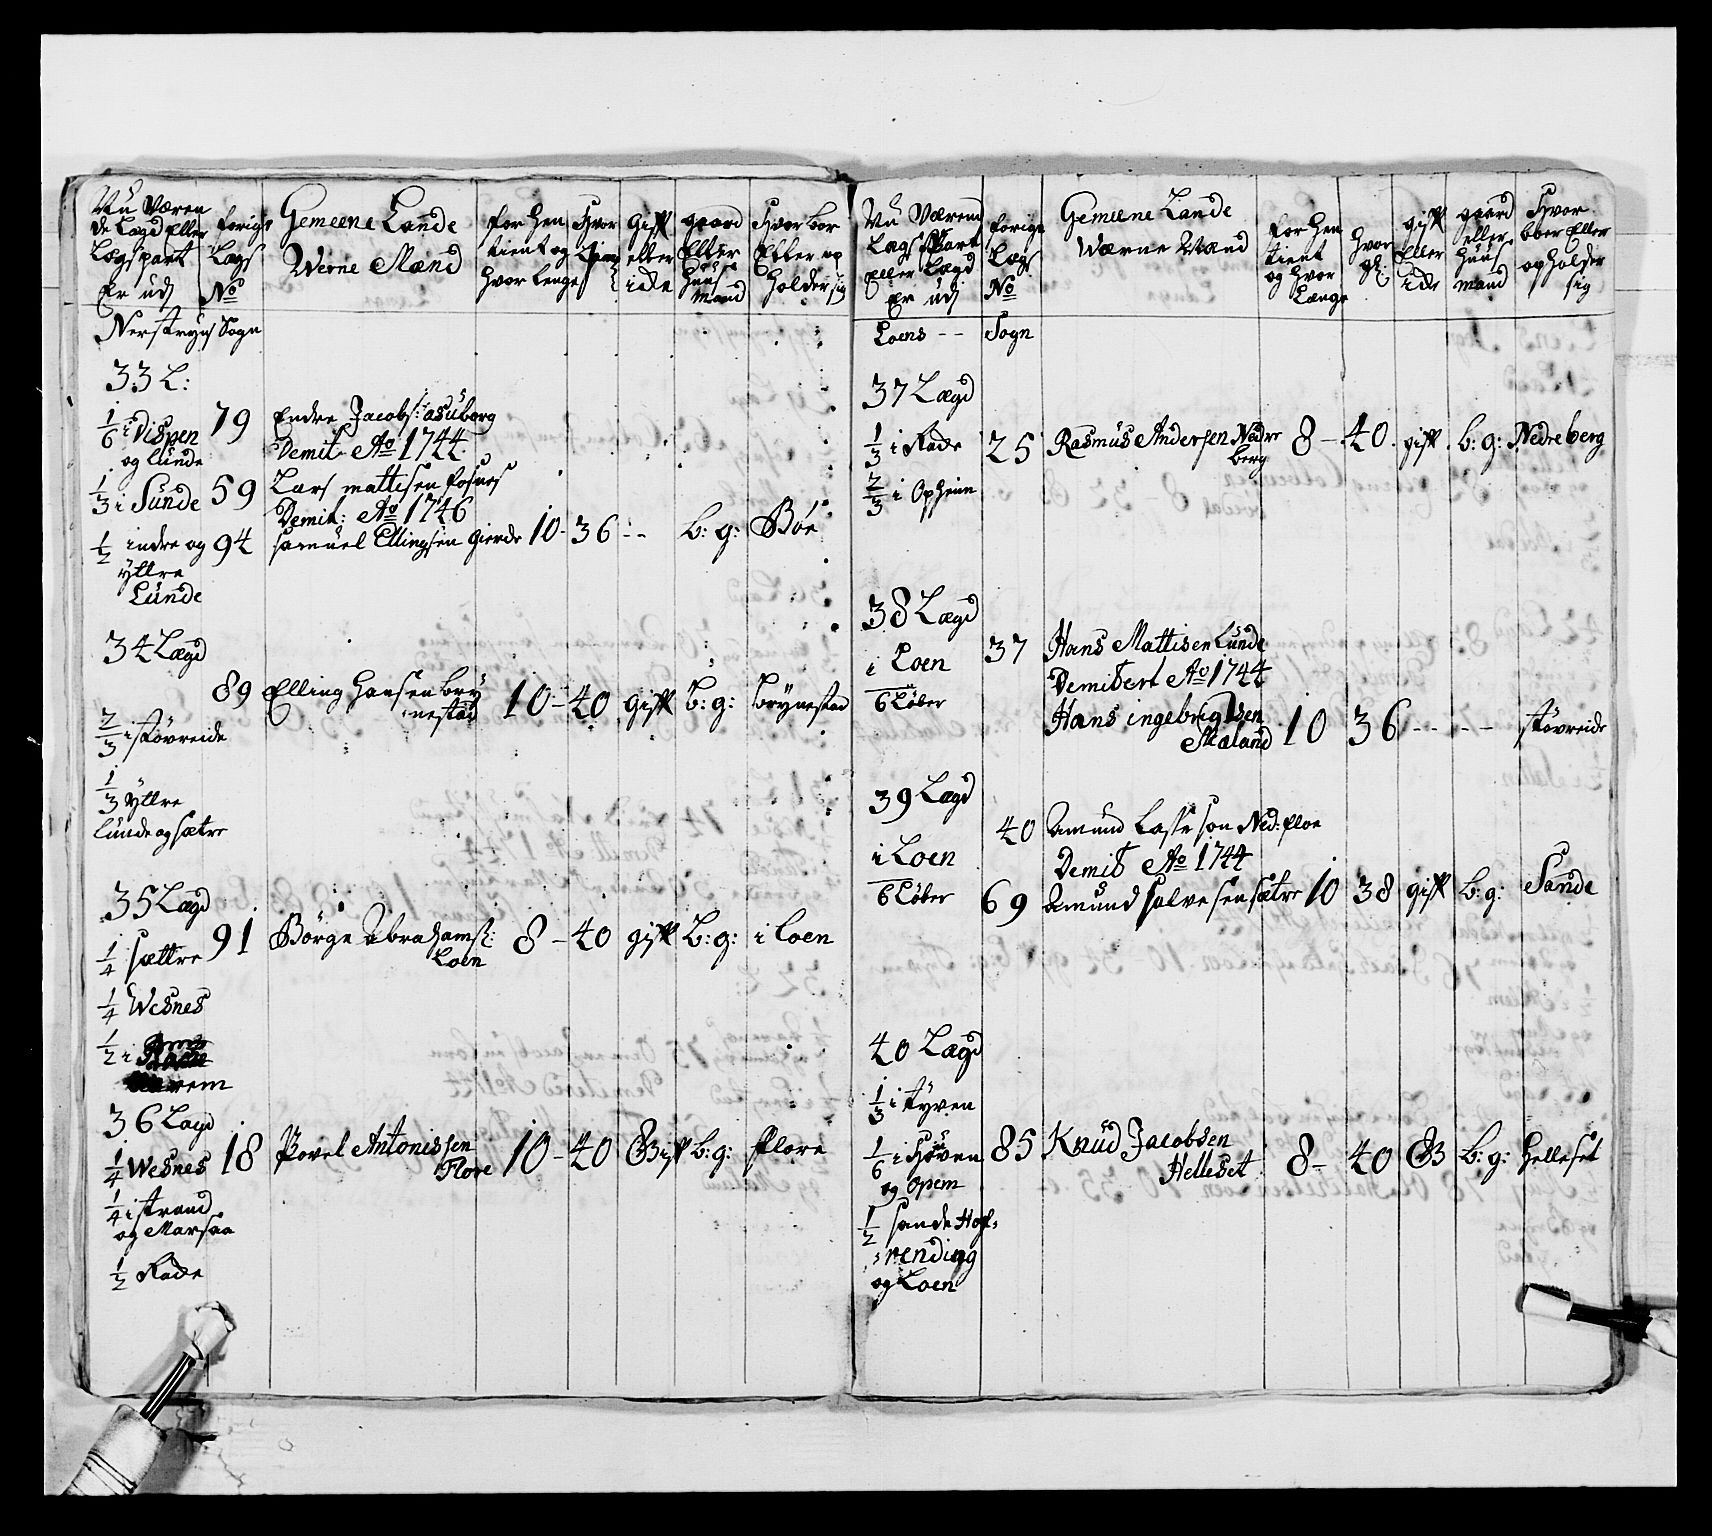 Nu Væren
de Lægd Eller
Lægspart
Er udj
forige
Lægs
No
Gemeene Lande
Werne Mænd
for hen
tient og
hvor lenge
Hvor
gift
eller
icke
gaard
Eller
huus
mand
Hvor boer
Eller op
holder sig
Nerstryns Sogn
33 L:
1/6 i Vispen
og lunde
79
Endre Jacobs: asuborg
Demit Ao 1744
1/3 i Sunde
59
Lars mattisen fosnes
Demit: Ao 1746
1/2 indre og
yttre
Lunde
94
Samuel Ellingsen Gierde
10 - 36 - - b: g: Böe
34 Lægd
89
Elling Hansen bry
nestad
10 - 40 gift b: g: brynestad
2/3 i Støvreide
1/3 yttre
Lunde og sætre
35 Lægd
1/4 sættre
91
Börge Abrahams:
Loen
8 - 40 gift b: g: i Loen
1/4 Wesnes
1/2 i
36 Lægd
1/4 Wesnes
18
Povel Antonissen
Flore
10 - 40 Gift b: g: flore
1/4 i strand
og Marsaa
1/2 Rade
Nu Værend
Lægs Part
Eller Lægd
Er udj
forige
Læg
No
Gemeene Lande
Wærne Mænd
for hen
tient
og hvor
Længe
hvor
gl:
gift
Eller
icke
gaard
eller
huus
mand
Hvor
boer Eller
opholder
sig
Loens -- Sogn
37 Lægd
1/3 i Rade
25
Rasmus Andersen Nedre
berg
8 - 40 . gift . b: g: Nedre berg
2/3 i Opheim
38 Lægd
i Loen
6 Løber
37
Hans Mattisen Lunde
Demitert Ao 1744
Hans ingebrigtsen
Mæland
10 36 - - - - støvreide
39 Lægd
i Loen
6 Løber
40
Amund Lasse son Ned: floe
Demit Ao 1744
69
Amund salvesen sætre 10 38 gift b: g: Sande
40 Lægd
1/3 i Tyven
1/6 i Hoven
og Opem
85
Knud Jacobsen
Helleset
8 - 40 G b: g: Helleset
1/2 sande Hog=
=rending
og Loen